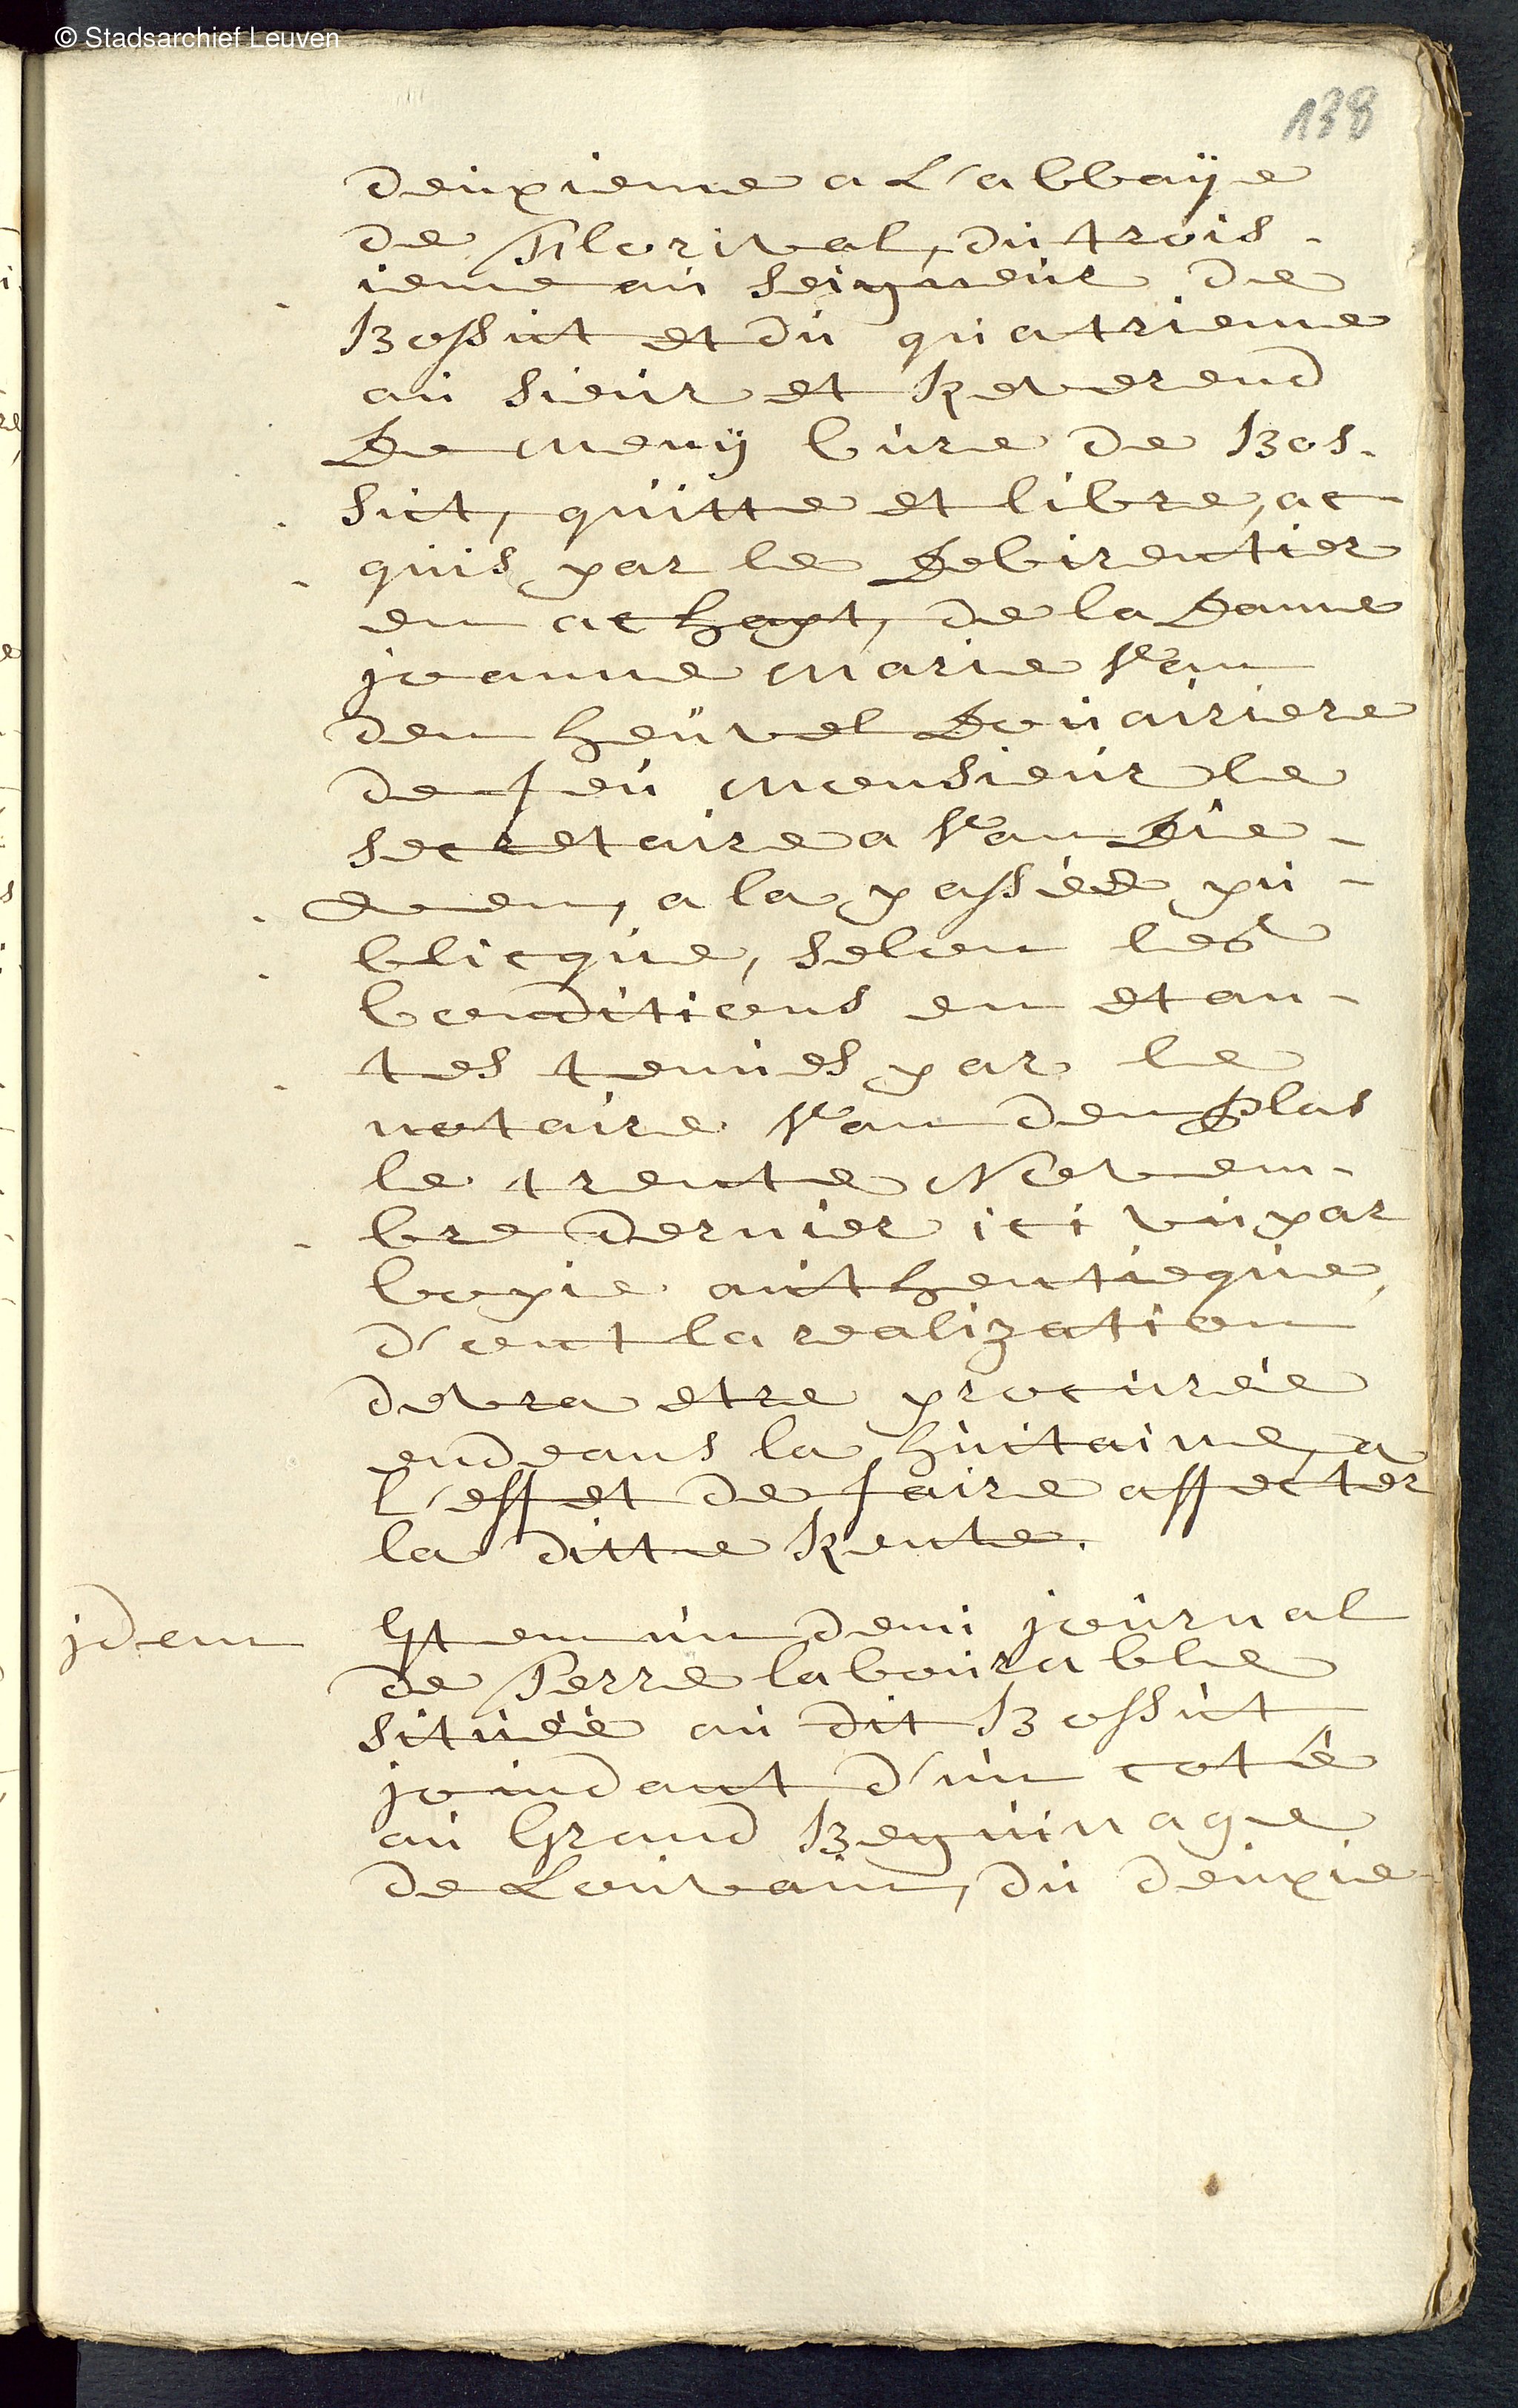 © Stadsarchief Leuven
138
deuxieme a L'abbaÿe
de Florival, du trois-
ieme au seigneur de
Bossut et du quatrieme
au sieur et Reverend
De Meuÿ Cure de Bos-
sut, quitte et libre, ac
quis par le Debirentier
en achapt, de la Dame
jeanne Marie Van
den heuvel Douairiere
de feu Monsieur le
secretaire a Van Die-
ven, a la passée pu-
blicque, selon les
Conditions en etan-
tes tenues par le
notaire Van den Plas
le trente Novem-
bre dernier ici vu par
Copie authentieque,
d'ont la realization
devra etre procurée
endeans la huitaine, a
l'effet de faire affecter
la ditte Rente.
jdem
Item un demi journal
de Terre labourable
située au dit Bossut
joindant d'un coté
au Grand Beguinage
de Louvain, du deuxie